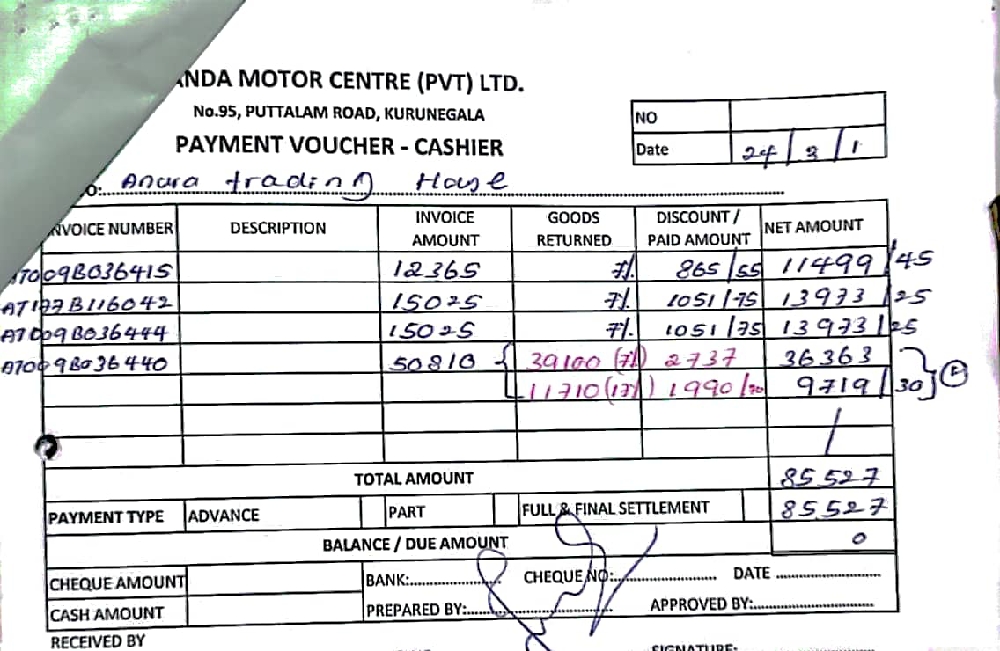 ANDA MOTOR CENTRE (PVT) LTD.
No.95, PUTTALAM ROAD, KURUNEGALA
PAYMENT VOUCHER - CASHIER
NO
Date 24/3/1
O: Anura trading House
NVOICE NUMBER DESCRIPTION INVOICE AMOUNT GOODS RETURNED DISCOUNT / PAID AMOUNT NET AMOUNT
AT009B036415 12365 7% 865/55 11499/45
AT177B116042 15025 7% 1051/75 13973/25
AT009B036444 15025 7% 1051/75 13973/25
AT009B036440 50810 { 39100 (7%) 2737 36363
11710 (17%) 1990/70 9719/30
TOTAL AMOUNT 85527
PAYMENT TYPE ADVANCE PART FULL & FINAL SETTLEMENT 85527
BALANCE / DUE AMOUNT 0
CHEQUE AMOUNT BANK: CHEQUE NO: DATE
CASH AMOUNT PREPARED BY: APPROVED BY:
RECEIVED BY
SIGNATURE: